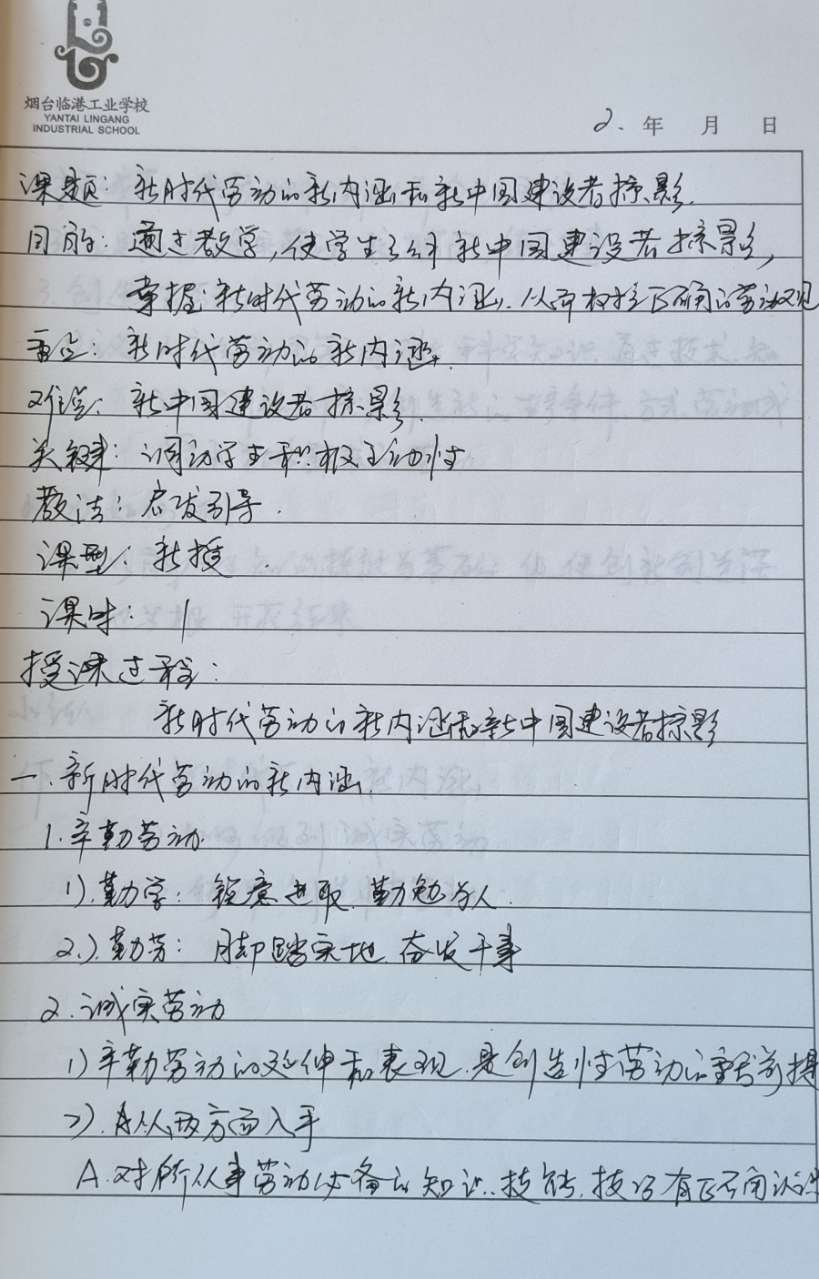 烟台临港工业学校
YANTAI LINGANG
INDUSTRIAL SCHOOL
2. 年 月 日
课题: 新时代劳动的新内涵和新中国建设者掠影.
目的: 通过教学,使学生了解新中国建设者掠影,
掌握新时代劳动的新内涵. 从而树立正确的劳动观
重点: 新时代劳动的新内涵.
难点: 新中国建设者掠影.
关键: 调动学生积极主动性
教法: 启发引导.
课型: 新授.
课时: 1
授课过程:
新时代劳动的新内涵和新中国建设者掠影
一.新时代劳动的新内涵.
1.辛勤劳动.
1).勤学: 锐意进取.勤勉为人.
2.).勤劳: 脚踏实地.奋发干事
2.诚实劳动
1)辛勤劳动的延伸和表现.是创造性劳动的重要前提
2).从两方面入手
A.对所从事劳动必备的知识.技能.技巧有正确认识